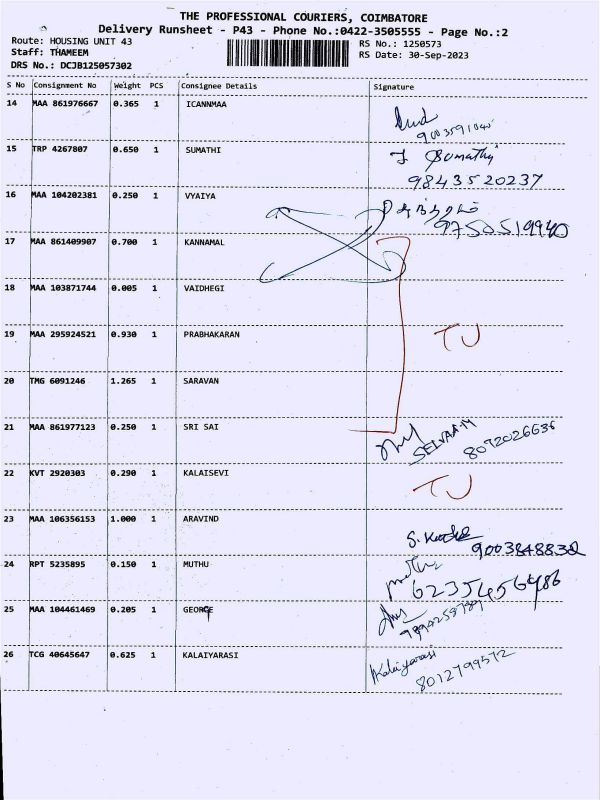 THE PROFESSIONAL COURIERS, COIMBATORE
Delivery Runsheet - P43 - Phone No.:0422-3505555 - Page No.:2
Route: HOUSING UNIT 43
RS No.: 1250573
Staff: THAMEEM
RS Date: 30-Sep-2023
DRS No.: DCJB125057302
S No Consignment No Weight PCS Consignee Details Signature
14 MAA 861976667 0.365 1 ICANNMAA
15 TRP 4267807 0.650 1 SUMATHI Sumathi
9843520237
16 MAA 104202381 0.250 1 VYAIYA
9750519940
17 MAA 861409907 0.700 1 KANNAMAL
18 MAA 103871744 0.005 1 VAIDHEGI
19 MAA 295924521 0.930 1 PRABHAKARAN TJ
20 TMG 6091246 1.265 1 SARAVAN
21 MAA 861977123 0.250 1 SRI SAI SELVARAJ
8072026636
22 KVT 2920303 0.290 1 KALAISEVI TJ
23 MAA 106356153 1.000 1 ARAVIND
9003848832
24 RPT 5235895 0.150 1 MUTHU
6235456486
25 MAA 104461469 0.205 1 GEORGE
26 TCG 40645647 0.625 1 KALAIYARASI Kalaiyarasi
8012799572